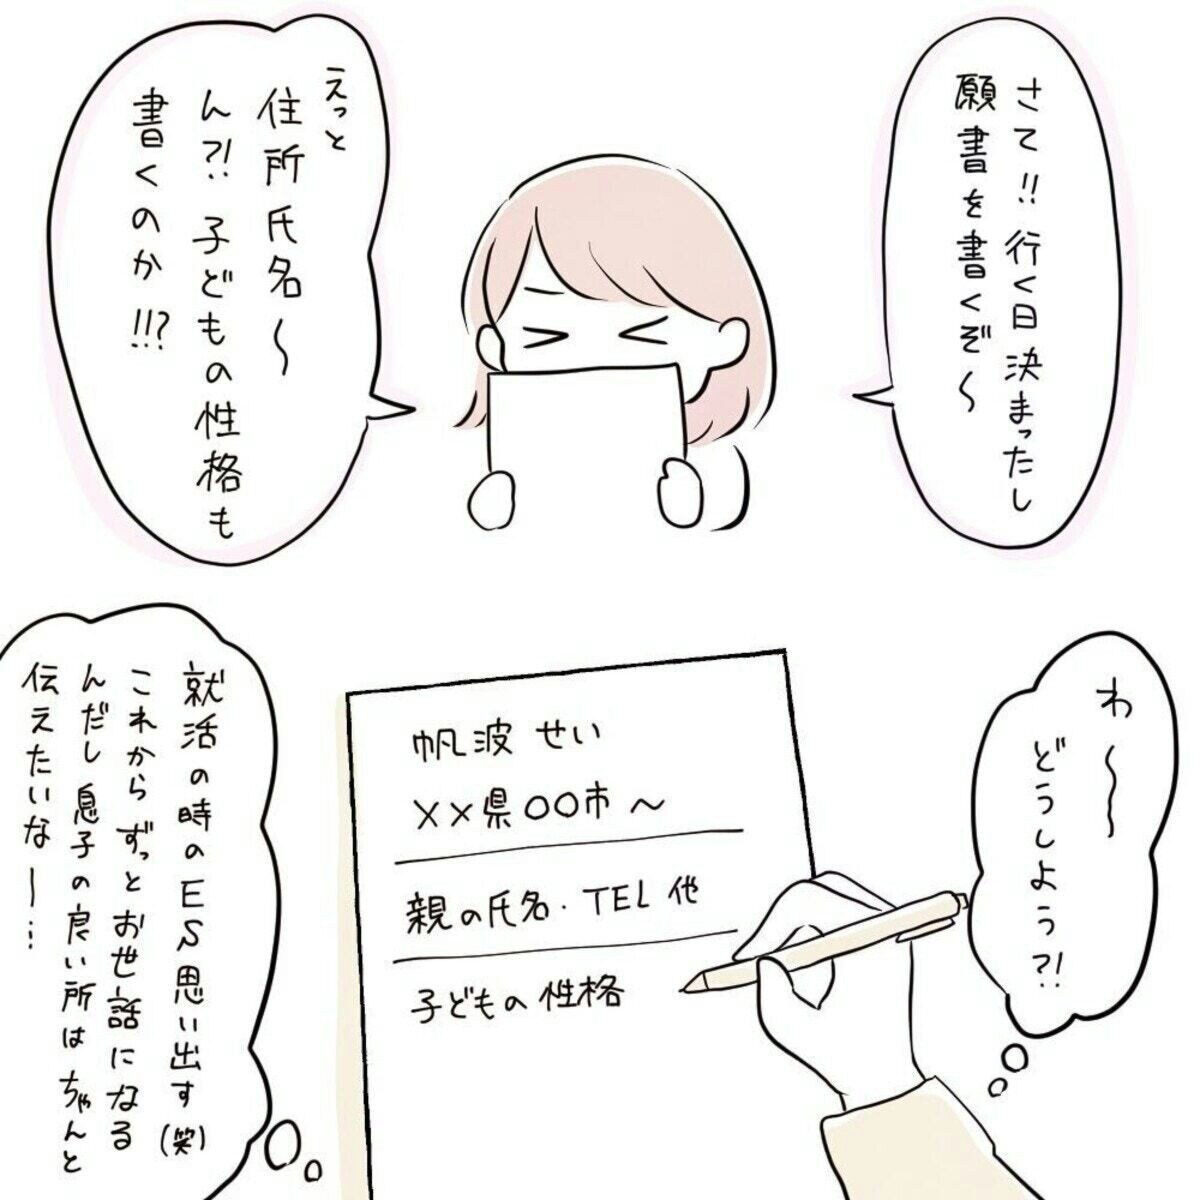 さて!! 行く日 決まったし
願書を書くぞ〜
えっと
住所氏名〜
ん?! 子どもの性格も
書くのか!!?
わ〜
どうしよう?!
帆波 せい
××県〇〇市 〜
親の氏名・TEL 他
子どもの 性格
就活の時のES思い出す(笑)
これから ずっと お世話になる
んだし 息子の良い所は ちゃんと
伝えたいな〜…